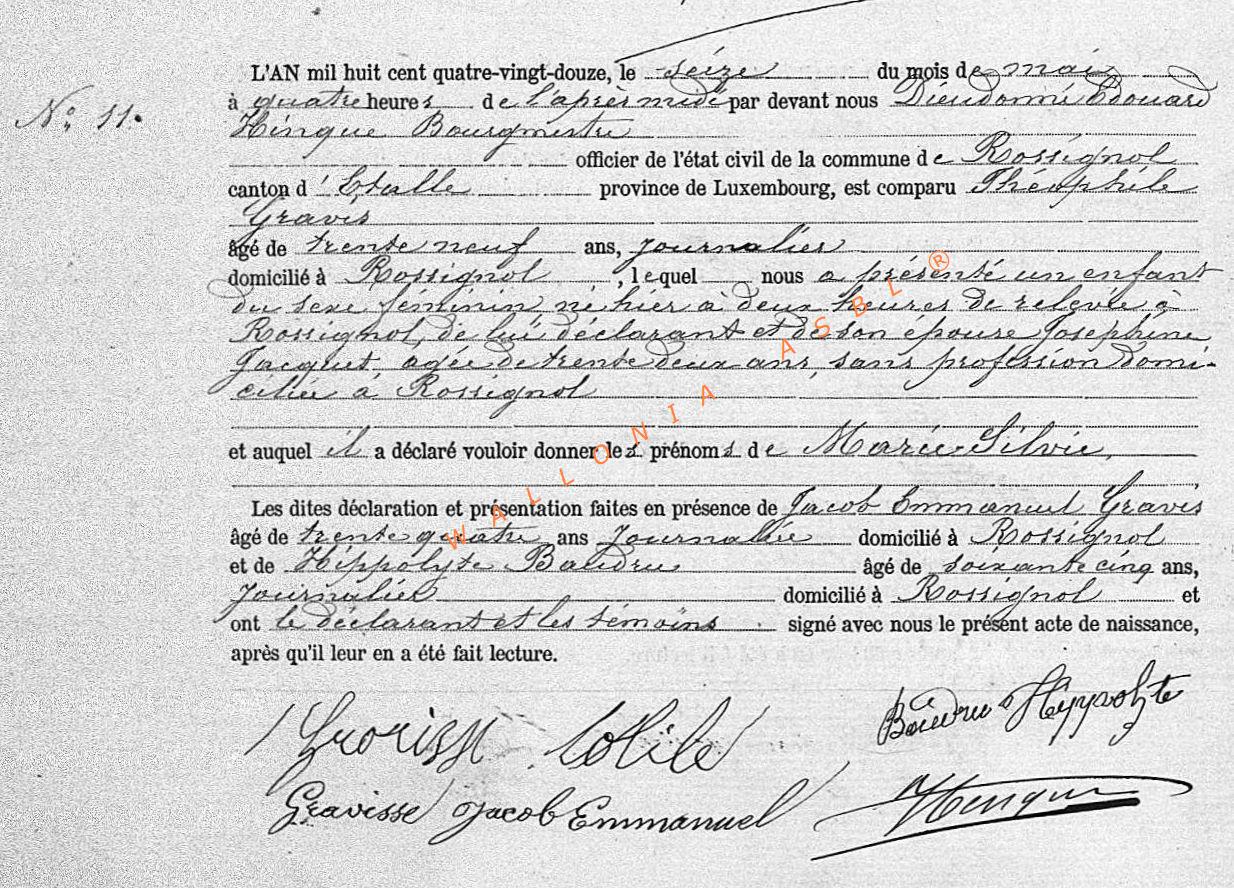 L'AN mil huit cent quatre-vingt-douze, le seize du mois de mai
N° 11. à quatre heures de l'après midi par devant nous Dieudonné Edouard
Hinque Bourgmestre
officier de l'état civil de la commune de Rossignol
canton d'Etalle province de Luxembourg, est comparu Théophile
Gravis
âgé de trente neuf ans, journalier
domicilié à Rossignol, lequel nous a présenté un enfant
du sexe féminin, né hier à deux heures de relevée à
Rossignol, de lui déclarant et de son épouse Joséphine
Jacquet, agée de trente deux ans, sans profession domi-
ciliée à Rossignol
et auquel il a déclaré vouloir donner les prénoms de Marie-Silvie,
Les dites déclaration et présentation faites en présence de Jacob Emmanuel Gravis
âgé de trente quatre ans Journalier domicilié à Rossignol
et de Hippolyte Baudru âgé de soixante cinq ans,
Journalier domicilié à Rossignol et
ont le déclarant et les témoins signé avec nous le présent acte de naissance,
après qu'il leur en a été fait lecture.
Baudru Hyppolyte
Gravisse Jacob Emmanuel
WALLONIA ASBL ®